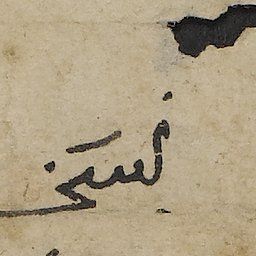 نسخ